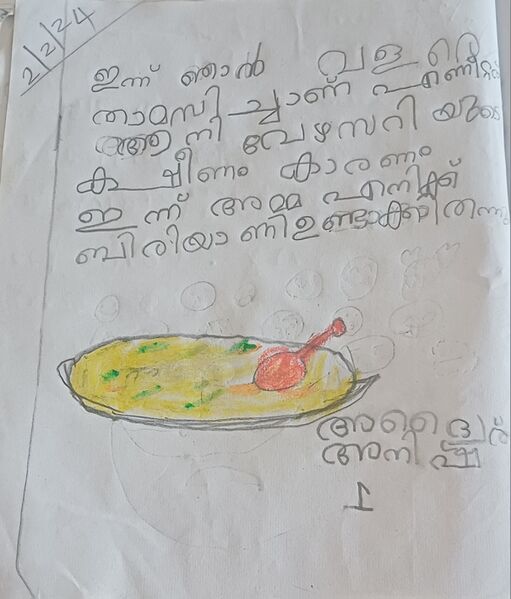 2/2/24
ഇന്ന് ഞാൻ വളരെ
താമസിച്ചാണ് എണീറ്റത്
ആനി വേഴസറി യുടെ
കഷീണം കാരണം
ഇന്ന് അമ്മ എനിക്ക്
ബിരിയാണി ഉണ്ടാക്കി തന്നു
അനിഷ്
1